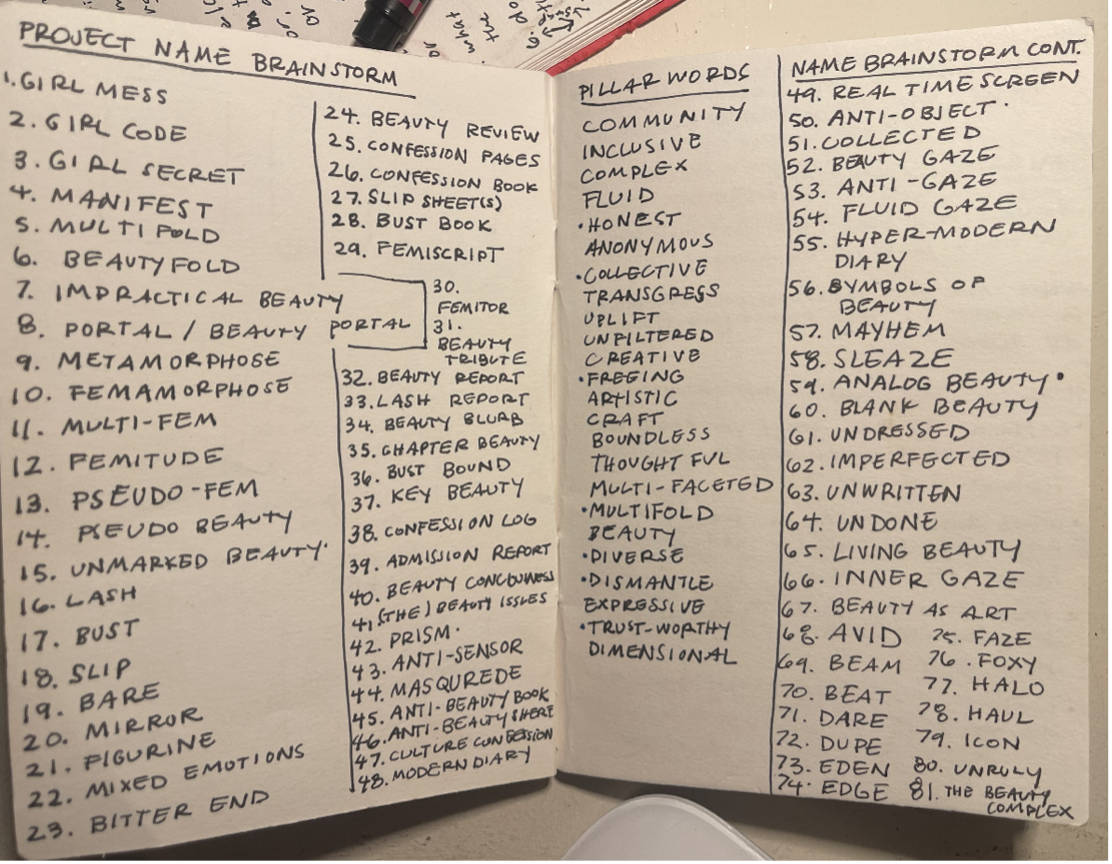 PROJECT NAME BRAINSTORM
1. GIRL MESS
2. GIRL CODE
3. GIRL SECRET
4. MANIFEST
5. MULTIFOLD
6. BEAUTYFOLD
7. IMPRACTICAL BEAUTY
8. PORTAL / BEAUTY PORTAL
9. METAMORPHOSE
10. FEMAMORPHOSE
11. MULTI-FEM
12. FEMITUDE
13. PSEUDO-FEM
14. PSEUDO BEAUTY
15. UNMARKED BEAUTY·
16. LASH
17. BUST
18. SLIP
19. BARE
20. MIRROR
21. FIGURINE
22. MIXED EMOTIONS
23. BITTER END
24. BEAUTY REVIEW
25. CONFESSION PAGES
26. CONFESSION BOOK
27. SLIP SHEET(S)
28. BUST BOOK
29. FEMISCRIPT
30.
FEMITOR
31.
BEAUTY
TRIBUTE
32. BEAUTY REPORT
33. LASH REPORT
34. BEAUTY BLURB
35. CHAPTER BEAUTY
36. BUST BOUND
37. KEY BEAUTY
38. CONFESSION LOG
39. ADMISSION REPORT
40. BEAUTY
41. (THE) BEAUTY ISSUES
42. PRISM·
43. ANTI-SENSOR
44. MASQUREDE
45. ANTI-BEAUTY BOOK
46. ANTI-BEAUTY
47. CULTURE CONFESSION
48. MODERN DIARY
PILLAR WORDS
COMMUNITY
INCLUSIVE
COMPLEX
FLUID
·HONEST
ANONYMOUS
·COLLECTIVE
TRANSGRESS
UPLIFT
UNFILTERED
CREATIVE
·FREEING
ARTISTIC
CRAFT
BOUNDLESS
THOUGHTFUL
MULTI-FACETED
·MULTIFOLD
BEAUTY
·DIVERSE
·DISMANTLE
EXPRESSIVE
·TRUST-WORTHY
DIMENSIONAL
NAME BRAINSTORM CONT.
49. REAL TIME SCREEN
50. ANTI-OBJECT·
51. COLLECTED
52. BEAUTY GAZE
53. ANTI-GAZE
54. FLUID GAZE
55. HYPER-MODERN
DIARY
56. SYMBOLS OF
BEAUTY
57. MAYHEM
58. SLEAZE
59. ANALOG BEAUTY·
60. BLANK BEAUTY
61. UNDRESSED
62. IMPERFECTED
63. UNWRITTEN
64. UNDONE
65. LIVING BEAUTY
66. INNER GAZE
67. BEAUTY AS ART
68. AVID
69. BEAM
70. BEAT
71. DARE
72. DUPE
73. EDEN
74. EDGE
75. FAZE
76. FOXY
77. HALO
78. HAUL
79. ICON
80. UNRULY
81. THE BEAUTY
COMPLEX